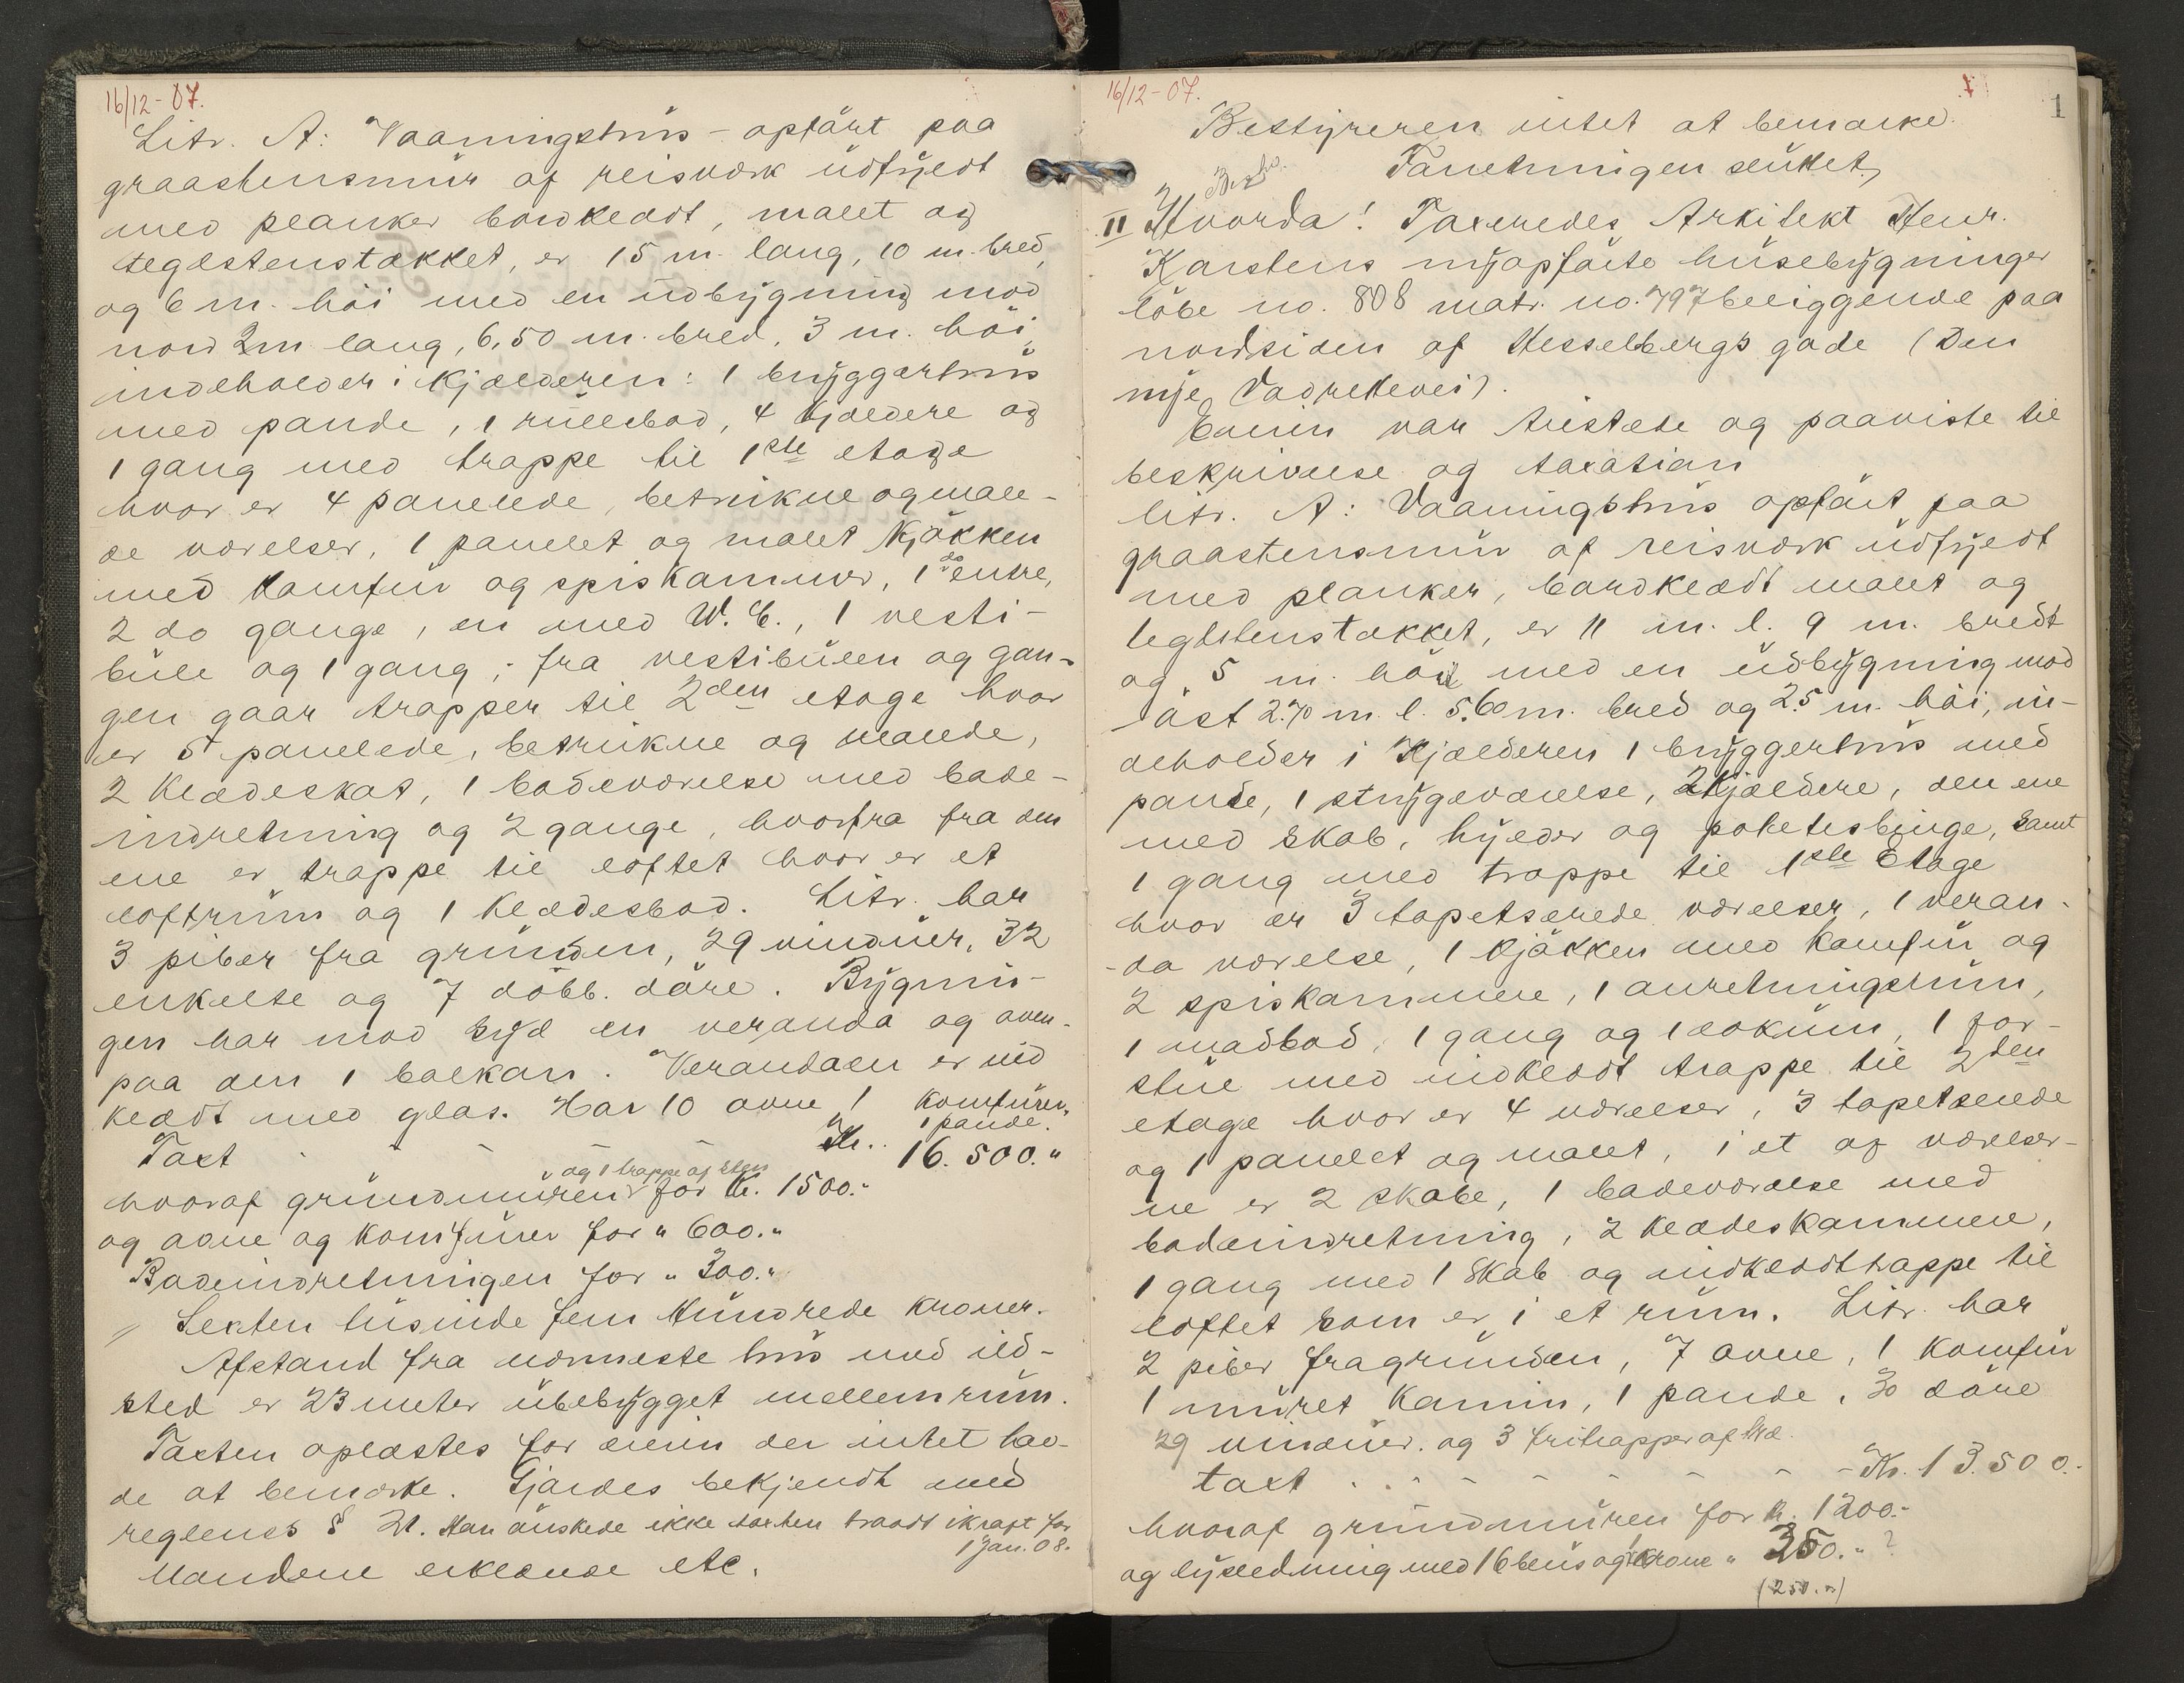 16/12-07.
Litr. A: Vaaningshus - opført paa
graastensmur af reisværk udfyldt
med planker bordklædt, malet og
teglstenstækket, er 15 m. lang, 10 m. bred,
og 6 m. høi med en udbygning mod
nord 2m lang, 6,50 m. bred, 3 m. høi,
indeholder i Kjælderen: 1 bryggerhus
med pande, 1 rullebod, 4 kjældere og
1 gang med trappe til 1ste etage
hvor er 4 panelede, betrukne og male-
de værelser, 1 panelet og malet Kjøkken
med komfur og spiskammer, 1 do entre,
2 do gange, en med W.C., 1 vesti-
bule og 1 gang; fra vestibulen og gan-
gen gaar trapper til 2den etage hvor
er 5 panelede, betrukne og malede,
2 Klædeskot, 1 badeværelse med bade-
indretning og 2 gange, hvorfra fra den
ene er trappe til loftet hvor er et
loftrum og 1 Klædesbod. Litr. har
3 piber fra grunden, 29 vinduer, 32
enkelte og 7 döbb. døre. Bygnin-
gen har mod syd en veranda og oven-
paa den 1 balkon. Verandaen er ind
klædt med glas. Har 10 ovne 1 Komfurer,
1 pande.
Taxt - - - - Kr. 16.500."
hvoraf grundmuren og 1 trappe af sten for Kr. 1500.-
og ovne og Komfurer for " 600."
Badeindretningen for " 300."
// Sexten tusinde fem Hundrede Kroner.
Afstand fra nærmeste hus med ild-
sted er 23 meter übebygget mellemrum.
Taxten oplæstes for eieren der intet hav-
de at bemærke. Gjordes bekjendt med
reglens § 21. Han ønskede ikke taxten traadt ikraft før
1 Jan. 08.
Mændene erklærede etc.
16/12-07.
1
Bestyreren intet at bemærke.
Forretningen sluttet,
II Hvorda! Taxeredes Arkitekt Henr.
Karstens nyopførte husebygninger
løbe no. 808 matr. no. 797 beliggende paa
nordsiden af Hesselbergs gade (Den
nye Vadretevei).
Eieren var tilstede og paaviste til
beskrivelse og taxation
litr. A: Vaaningshus opført paa
graastensmur af reisværk udfyldt
med planker, bordklædt malet og
teglstenstækket, er 11 m. l. 9 m. bredt
og 5 m. høi med en udbygning mod
øst 2.70 m. l. 5.60 m. bred og 2.5 m. høi, in-
deholder i Kjælderen 1 bryggerhus med
pande, 1 strygeværelse, 2 Kjældere, den ene
med skab, hylder og potetesbinge, samt
1 gang med trappe til 1ste Etage
hvor er 3 tapetserede værelser, 1 veran-
-da værelse, 1 Kjøkken med komfur og
2 spiskammere, 1 anretningsrum,
1 madbod, 1 gang og 1 lokum, 1 for-
stue med indklædt trappe til 2den
etage hvor er 4 værelser, 3 tapetserede
og 1 panelet og malet, i et af værelser-
ne er 2 skabe, 1 badeværelse med
badeindretning, 2 klædeskammere,
1 gang med 1 Skab og indklædt trappe til
loftet som er i et rum. Litr. har
2 piber fra grunden, 7 ovne, 1 komfur
1 muret Kamin, 1 pande, 30 døre
29 vinduer. og 3 fritrapper af træ.
taxt - - - - - Kr. 13.500.-
hvoraf grundmuren for Kr. 1200.-
og lysledning med 16 blus og 1 krone " 350." ?
(250.")